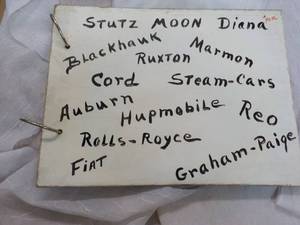 STUTZ MOON Diana
Blackhawk Marmon
Ruxton
Cord Steam-Cars
Auburn Hupmobile Reo
Rolls-Royce
FIAT Graham-Paige